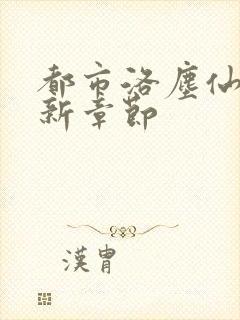 都市洛塵仙
新章節
漢胄